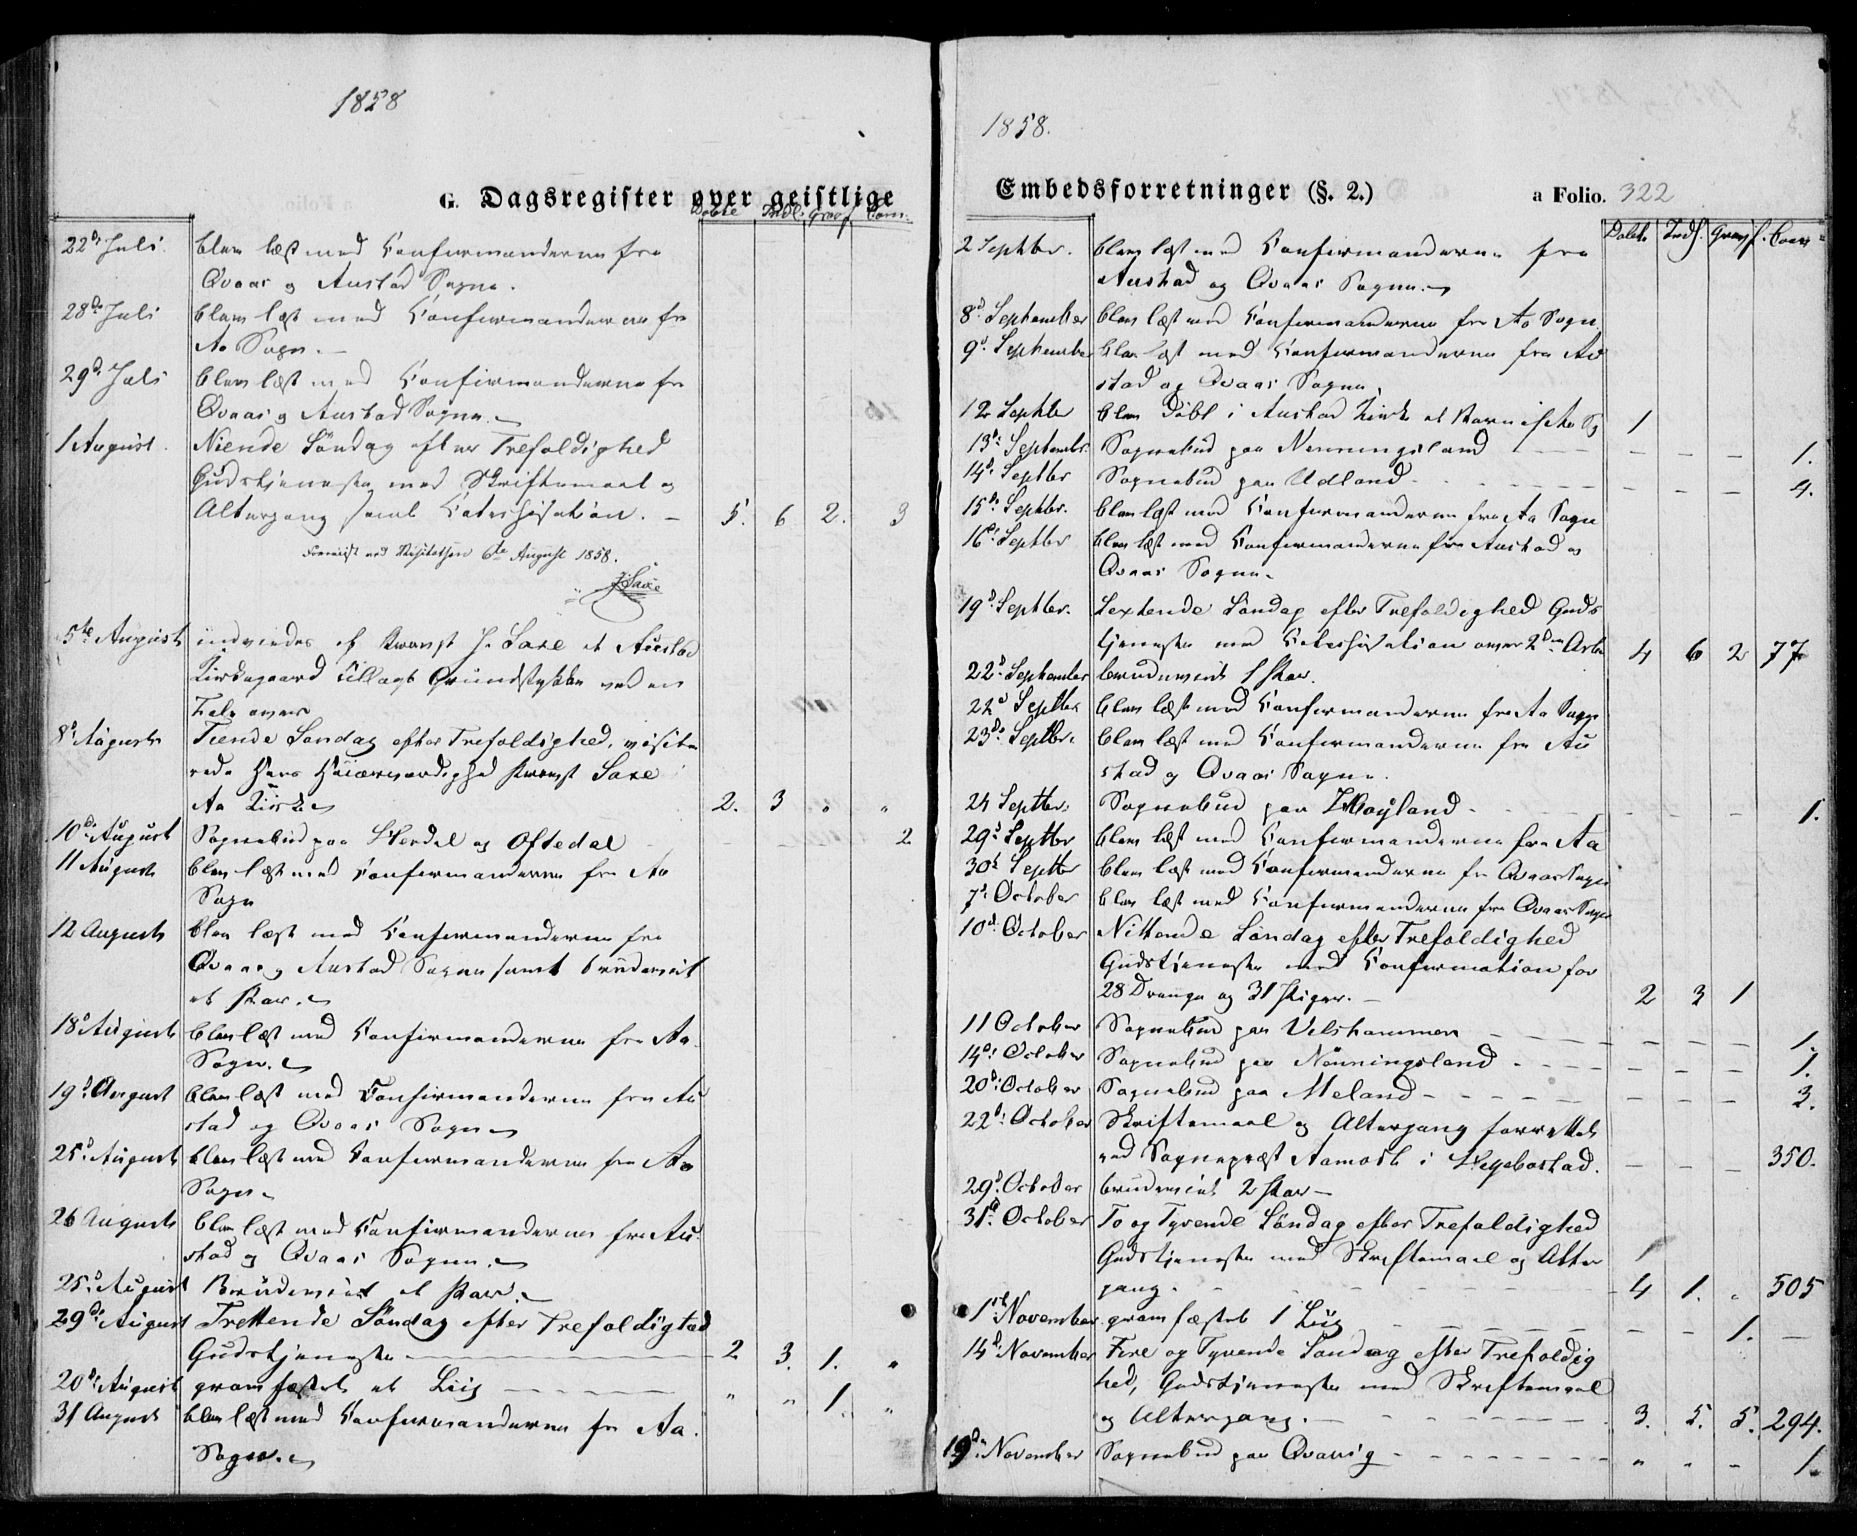 1858
G. Dagsregister over geistlige
Døbte Indl: Gravf. Com:
22d Juli blev læst med Confirmanderne fra
Qvaas og Austad Sogne.
28de Juli blev læst med Confirmanderne fra
Aa Sogn.
29d Juli blev læst med Confirmanderne fra
Qvaas og Austad Sogne.
1 August. Niende Søndag efter Trefoldighed
Gudstjeneste med Skriftemaal og
Altergang samt Catechisation. 5. 6 2. 3
ved Visitatsen 6te August 1858.
J. Saxe
5te August indviedes af Provst J. Saxe et Austad
Kirkegaard tillagt Grundstykke ved en
Tale
8d August Tiende Søndag efter Trefoldighed, visite
rede Hans Høiærværdighed Provst Saxe
Aa Kirke 2. 3 " "
10de August Sognebud paa Sterdal og Oftedal 2
11 August blev læst med Confirmanderne fra Aa
Sogn
12 August blev læst med Confirmanderne fra
Qvaas og Austad Sogne samt brudeviet
et Par.
18d August blev læst med Confirmanderne fra Aa
Sogn.
19d August blev læst med Confirmanderne fra Au
stad og Qvaas Sogne
25d August blev læst med Confirmanderne fra Aa
Sogn
26 August blev læst med Confirmanderne fra Au
stad og Qvaas Sogne.
25d August Brudeviet et Par.
29de August Trettende Søndag efter Trefoldighed
Gudstjeneste 2 3. 1. "
20de August gravfæstet et Liig " " 1. "
31 August blev læst med Confirmanderne fra Aa
Sogn.
1858.
Embedsforretninger (§. 2.)
a Folio. 322
Døbte Indl. Gravf. Com:
2 Septber. blev læst med Confirmanderne fra
Austad og Qvaas Sogne.
8d September blev læst med Confirmanderne fra Aa Sogn
9d September blev læst med Confirmanderne fra Au
stad og Qvaas Sogne.
12 Septber blev Døbt i Austad Kirke et Barn af Aa Sg 1
13d: September. Sognebud paa Nenningsland 1.
14d Septber Sognebud paa Udland 4.
15de Septber. blev læst med Confirmanderne fra Aa Sogn
16d: Septber blev læst med Confirmanderne fra Austad og
Qvaas Sogne.
19d Septber. Sextende Søndag efter Trefoldighed Guds
tjeneste med Catechisation over 2den Artk 4 6 2 77
22d September brudeviet 1 Par.
22d Septber blev læst med Confirmanderne fra Aa Sogn
23de Septber. blev læst med Confirmanderne fra Au
stad og Qvaas Sogne.
24 Septber. Sognebud paa Høyland 1.
29d Septber blev læst med Confirmanderne fra Aa
30d Septbr blev læst med Confirmanderne fra Qvaas Sogn
7d: October blev læst med Confirmanderne fra Qvaas Sogn
10d October Nittende Søndag efter Trefoldighed
Gudstjeneste med Confirmation for
28 Drenge og 31 Piger. 2 3 1
11 October Sognebud paa Velshammen 1.
14d: October Sognebud paa Nenningsland 1.
20d: October Sognebud paa Meland 3.
22d: October Skriftemaal og Altergang forrettet
ved Sogneprest Aamodt i Hegebostad. 350.
29d October brudeviet 2 Par
31d October To og Tyvende Søndag efter Trefoldighed
Gudstjeneste med Skriftemaal og Alter 1
gang. 4 1. " 505
1ste November gravfæstet 1 Liig 1.
14d November Fire og Tyvende Søndag efter Trefoldig
hed, Gudstjeneste med Skriftemaal
og Altergang. 3. 5. 5. 294.
19de November Sognebud paa Qvavig " " " 1.